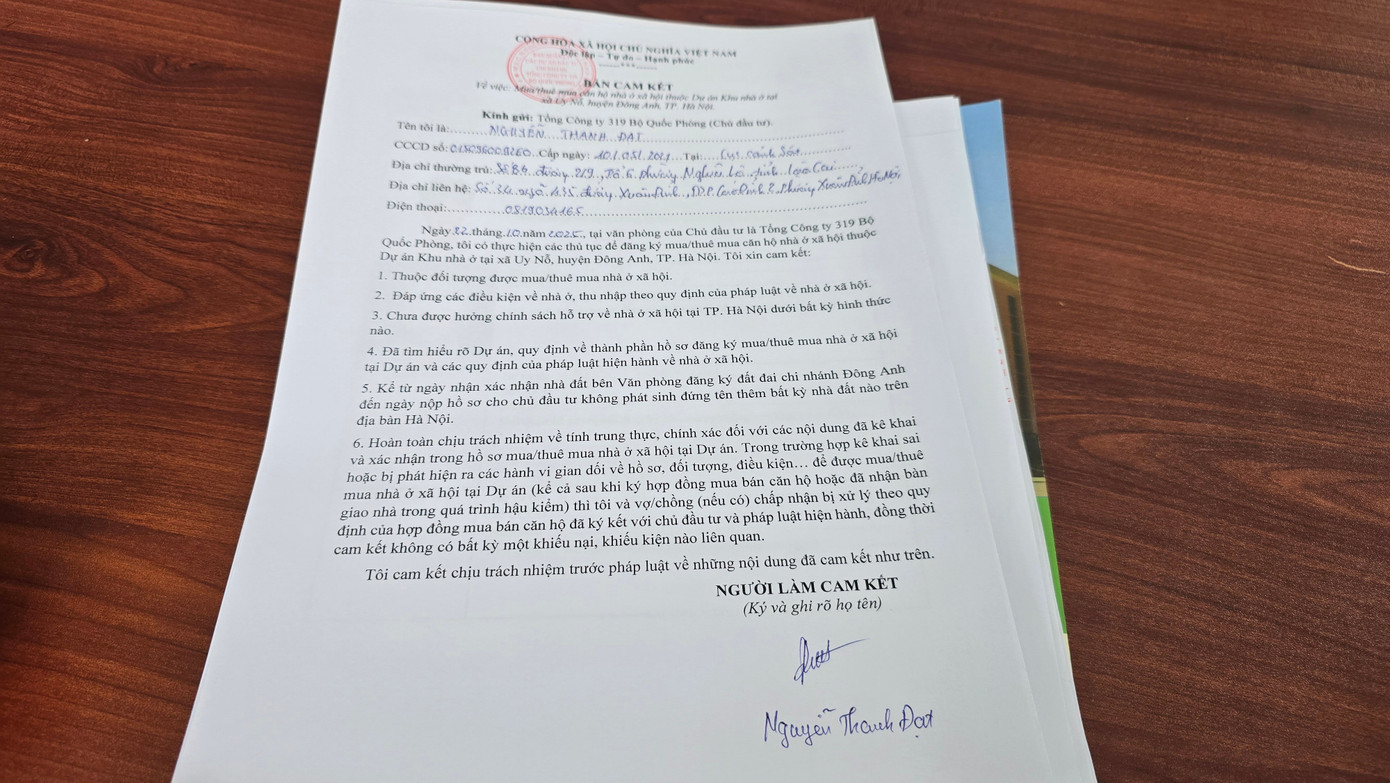 CỘNG HÒA XÃ HỘI CHỦ NGHĨA VIỆT NAM
Độc lập – Tự do – Hạnh phúc
BẢN CAM KẾT
Về việc: Mua/thuê mua căn hộ nhà ở xã hội thuộc Dự án Khu nhà ở tại
xã Uy Nỗ, huyện Đông Anh, TP. Hà Nội
Kính gửi: Tổng Công ty 319 Bộ Quốc Phòng (Chủ đầu tư)
Tên tôi là: NGUYỄN THANH ĐẠT
CCCD số: Cấp ngày: 10/05/2021 Tại: Cục Cảnh Sát
Địa chỉ thường trú: đường 219, Tổ 6, phường Nghĩa Lộ tỉnh Lào Cai
Địa chỉ liên hệ: Số 34 ngõ 435 đường Xuân Đỉnh, Phường Xuân Đỉnh, Hà Nội
Điện thoại: 0819034165
Ngày 22 tháng 10 năm 2025, tại văn phòng của Chủ đầu tư là Tổng Công ty 319 Bộ
Quốc Phòng, tôi có thực hiện các thủ tục để đăng ký mua/thuê mua căn hộ nhà ở xã hội thuộc
Dự án Khu nhà ở tại xã Uy Nỗ, huyện Đông Anh, TP. Hà Nội. Tôi xin cam kết:
1. Thuộc đối tượng được mua/thuê mua nhà ở xã hội.
2. Đáp ứng các điều kiện về nhà ở, thu nhập theo quy định của pháp luật về nhà ở xã hội.
3. Chưa được hưởng chính sách hỗ trợ về nhà ở xã hội tại TP. Hà Nội dưới bất kỳ hình thức
nào.
4. Đã tìm hiểu rõ Dự án, quy định về thành phần hồ sơ đăng ký mua/thuê mua nhà ở xã hội
tại Dự án và các quy định của pháp luật hiện hành về nhà ở xã hội.
5. Kể từ ngày nhận xác nhận nhà đất bên Văn phòng đăng ký đất đai chi nhánh Đông Anh
đến ngày nộp hồ sơ cho chủ đầu tư không phát sinh đứng tên thêm bất kỳ nhà đất nào trên
địa bàn Hà Nội.
6. Hoàn toàn chịu trách nhiệm về tính trung thực, chính xác đối với các nội dung đã kê khai
và xác nhận trong hồ sơ mua/thuê mua nhà ở xã hội tại Dự án. Trong trường hợp kê khai sai
hoặc bị phát hiện ra các hành vi gian dối về hồ sơ, đối tượng, điều kiện… để được mua/thuê
mua nhà ở xã hội tại Dự án (kể cả sau khi ký hợp đồng mua bán căn hộ hoặc đã nhận bàn
giao nhà trong quá trình hậu kiểm) thì tôi và vợ/chồng (nếu có) chấp nhận bị xử lý theo quy
định của hợp đồng mua bán căn hộ đã ký kết với chủ đầu tư và pháp luật hiện hành, đồng thời
cam kết không có bất kỳ một khiếu nại, khiếu kiện nào liên quan.
Tôi cam kết chịu trách nhiệm trước pháp luật về những nội dung đã cam kết như trên.
NGƯỜI LÀM CAM KẾT
(Ký và ghi rõ họ tên)
Nguyễn Thanh Đạt